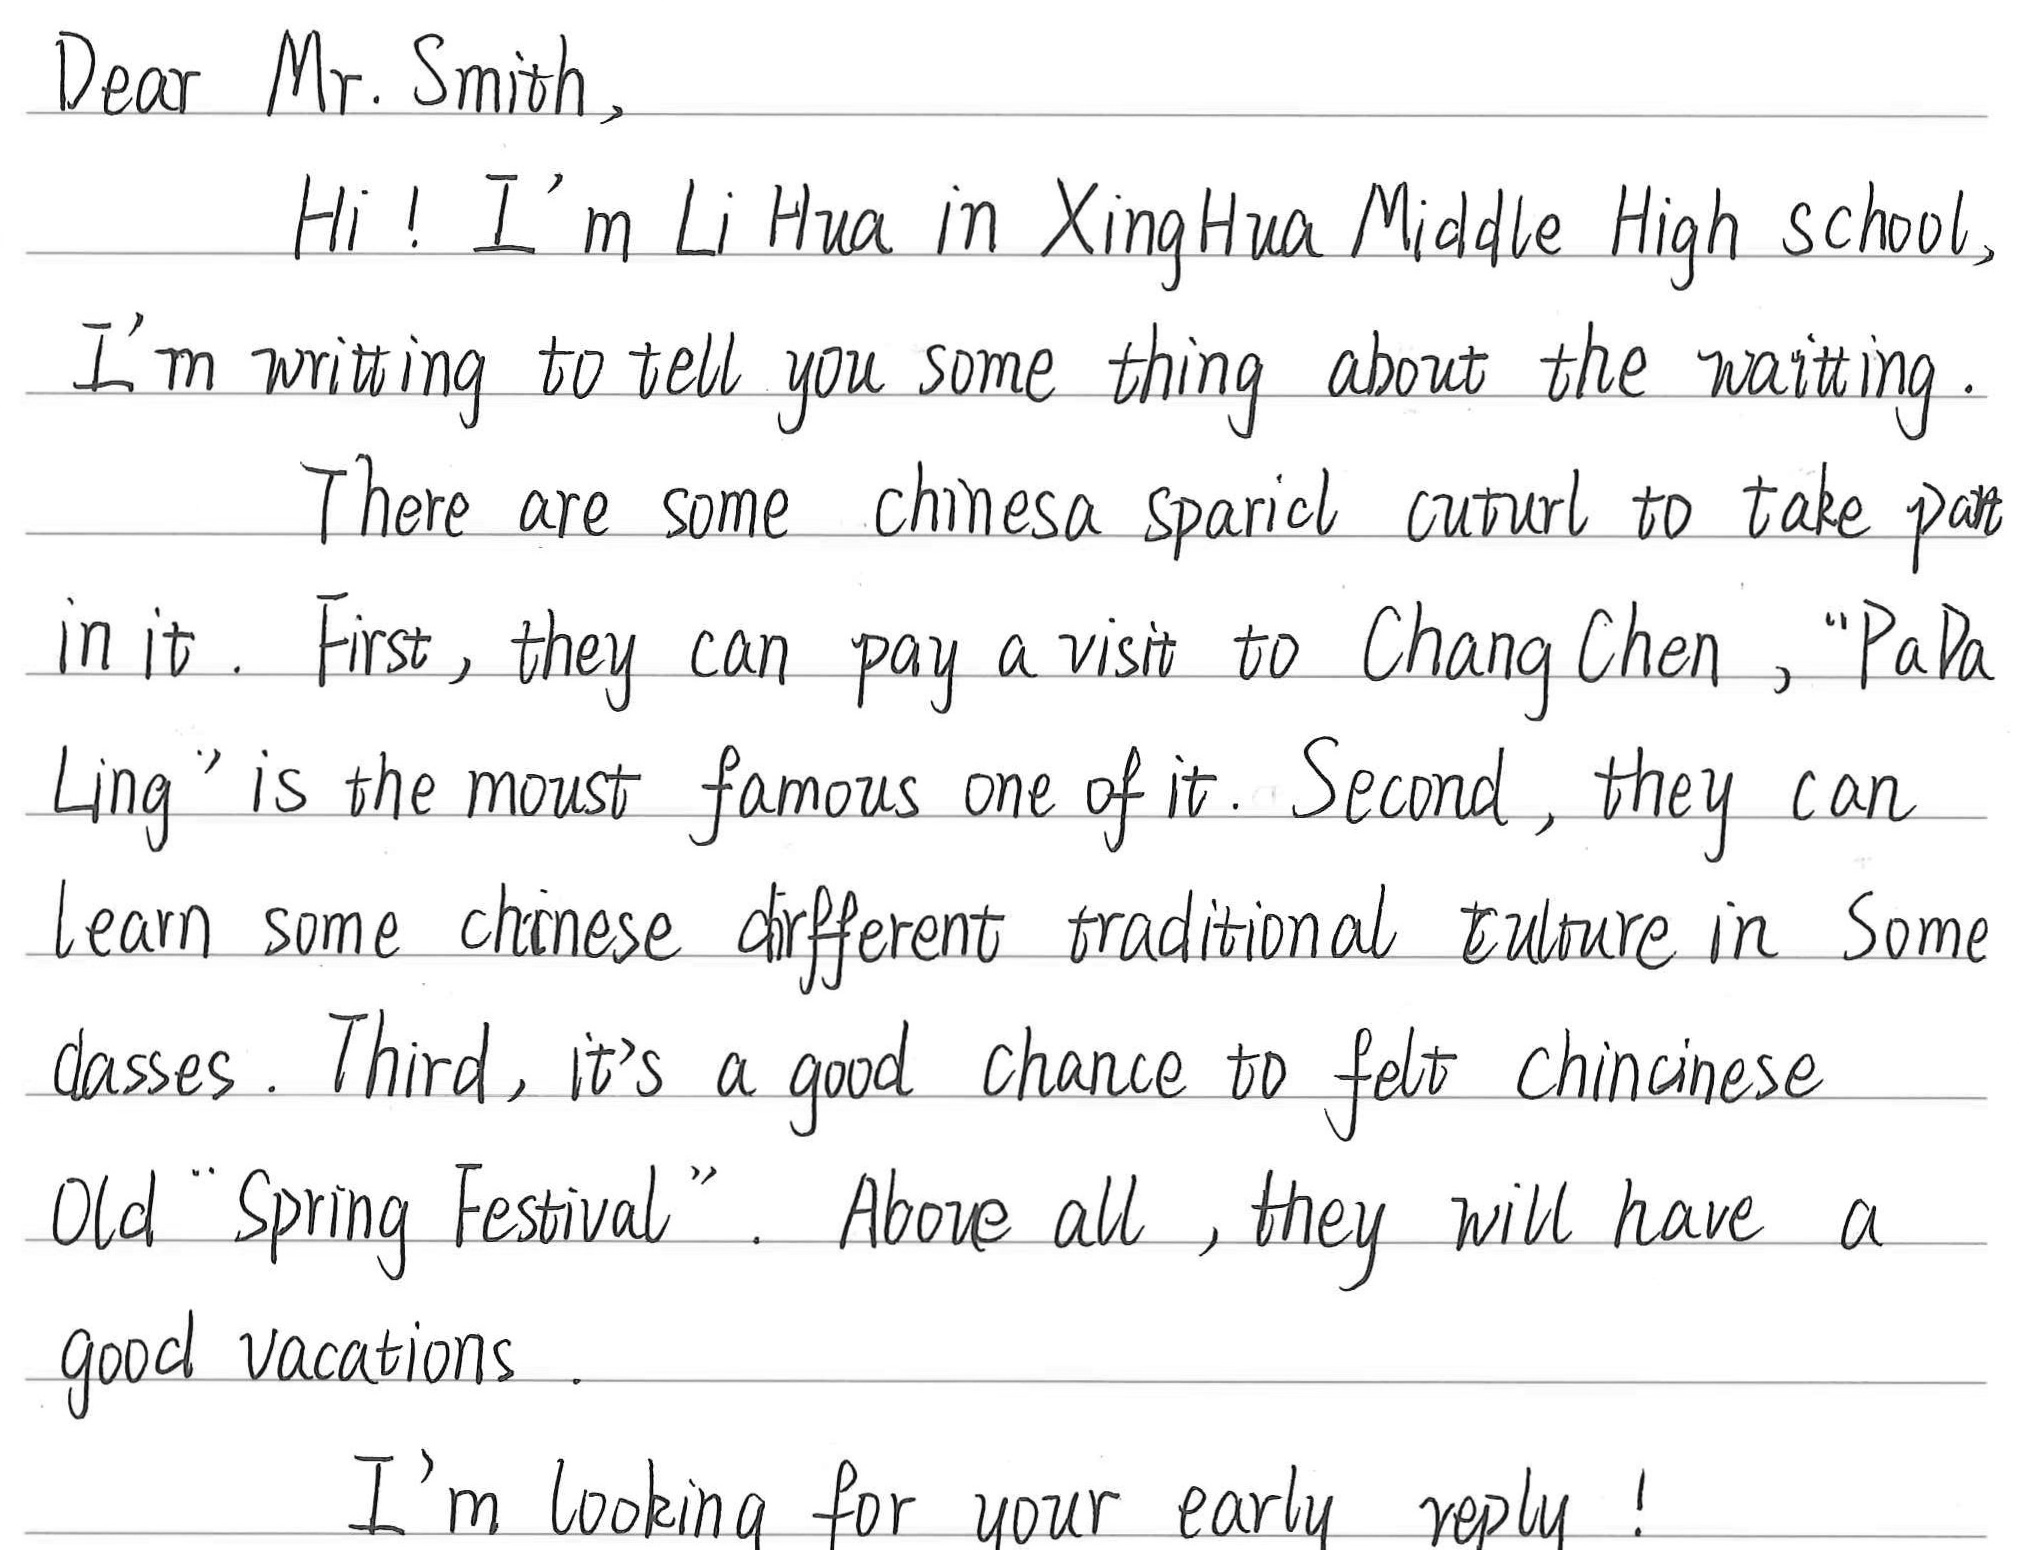 Dear Mr. Smith,
Hi! I'm Li Hua in XingHua Middle High school,
I'm writting to tell you some thing about the waitting.
There are some chinesa sparicl cuturl to take part
in it. First, they can pay a visit to Chang Chen, "PaDa
Ling" is the moust famous one of it. Second, they can
learn some chinese different traditional culture in Some
classes. Third, it's a good chance to felt chincinese
Old "Spring Festival". Above all, they will have a
good vacations.
I'm looking for your early reply!